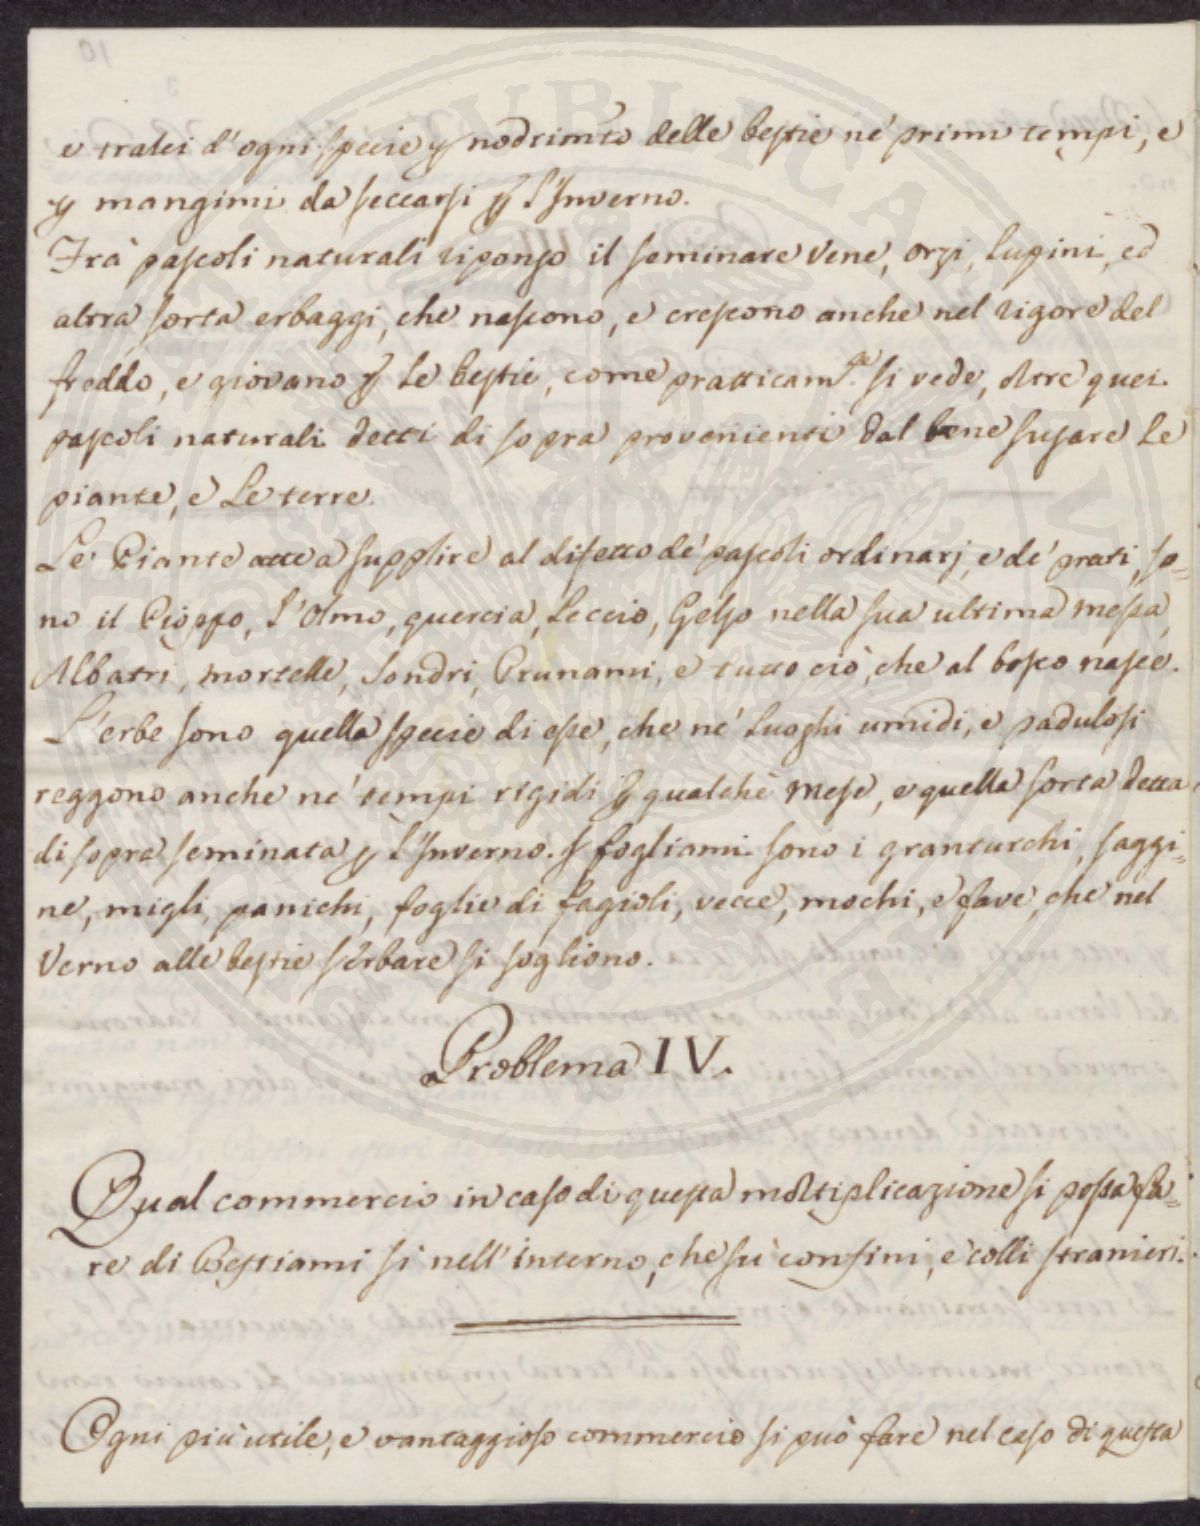 e tralci d'ogni specie p nodrimto delle bestie né primi tempi, e
p mangimi da seccarsi p l'Inverno.
Frà pascoli naturali ripongo il seminare Vene, orzi, Lupini, ed
altra sorta erbaggi, che nascono, e crescono anche nel rigore del
freddo, e giovano p le bestie, come pratticamte si vede, oltre quei
pascoli naturali detti di sopra provenienti dal bene fugare le
piante, e Le terre.
Le Piante atte a supplire al difetto dé pascoli ordinarj, e dé prati, so=
no il Pioppo, L'Olmo, quercia, Leccio, Gelso nella sua ultima messa,
Albatri, mortelle, Sondri, Prunami, e tutto ciò, che al bosco nasce.
L'erbe sono quella specie di esse, che né Luoghi umidi, e padulosi
reggono anche né tempi rigidi p qualche mese, e quella sorta detta
di sopra seminata p L'Inverno. I fogliami sono i granturchi, saggi=
ne, migli, panichi, foglie di fagioli, vecce, mochi, e fave, che nel
Verno alle bestie serbare si sogliono.
Problema IV.
Qual commercio in caso di questa moltiplicazione si possa fa=
re di Bestiami si nell'interno, che sù confini, e colli stranieri.
Ogni più utile, e vantaggioso commercio si può fare nel caso di questa